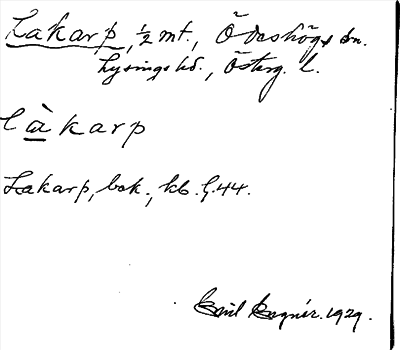 Lakarp, ½ mt., Ödeshögs sn.
Lysings hd., Österg. l.
làkarp
Lakarp, bok., kb. G. 44.
Emil Magnér. 1929.